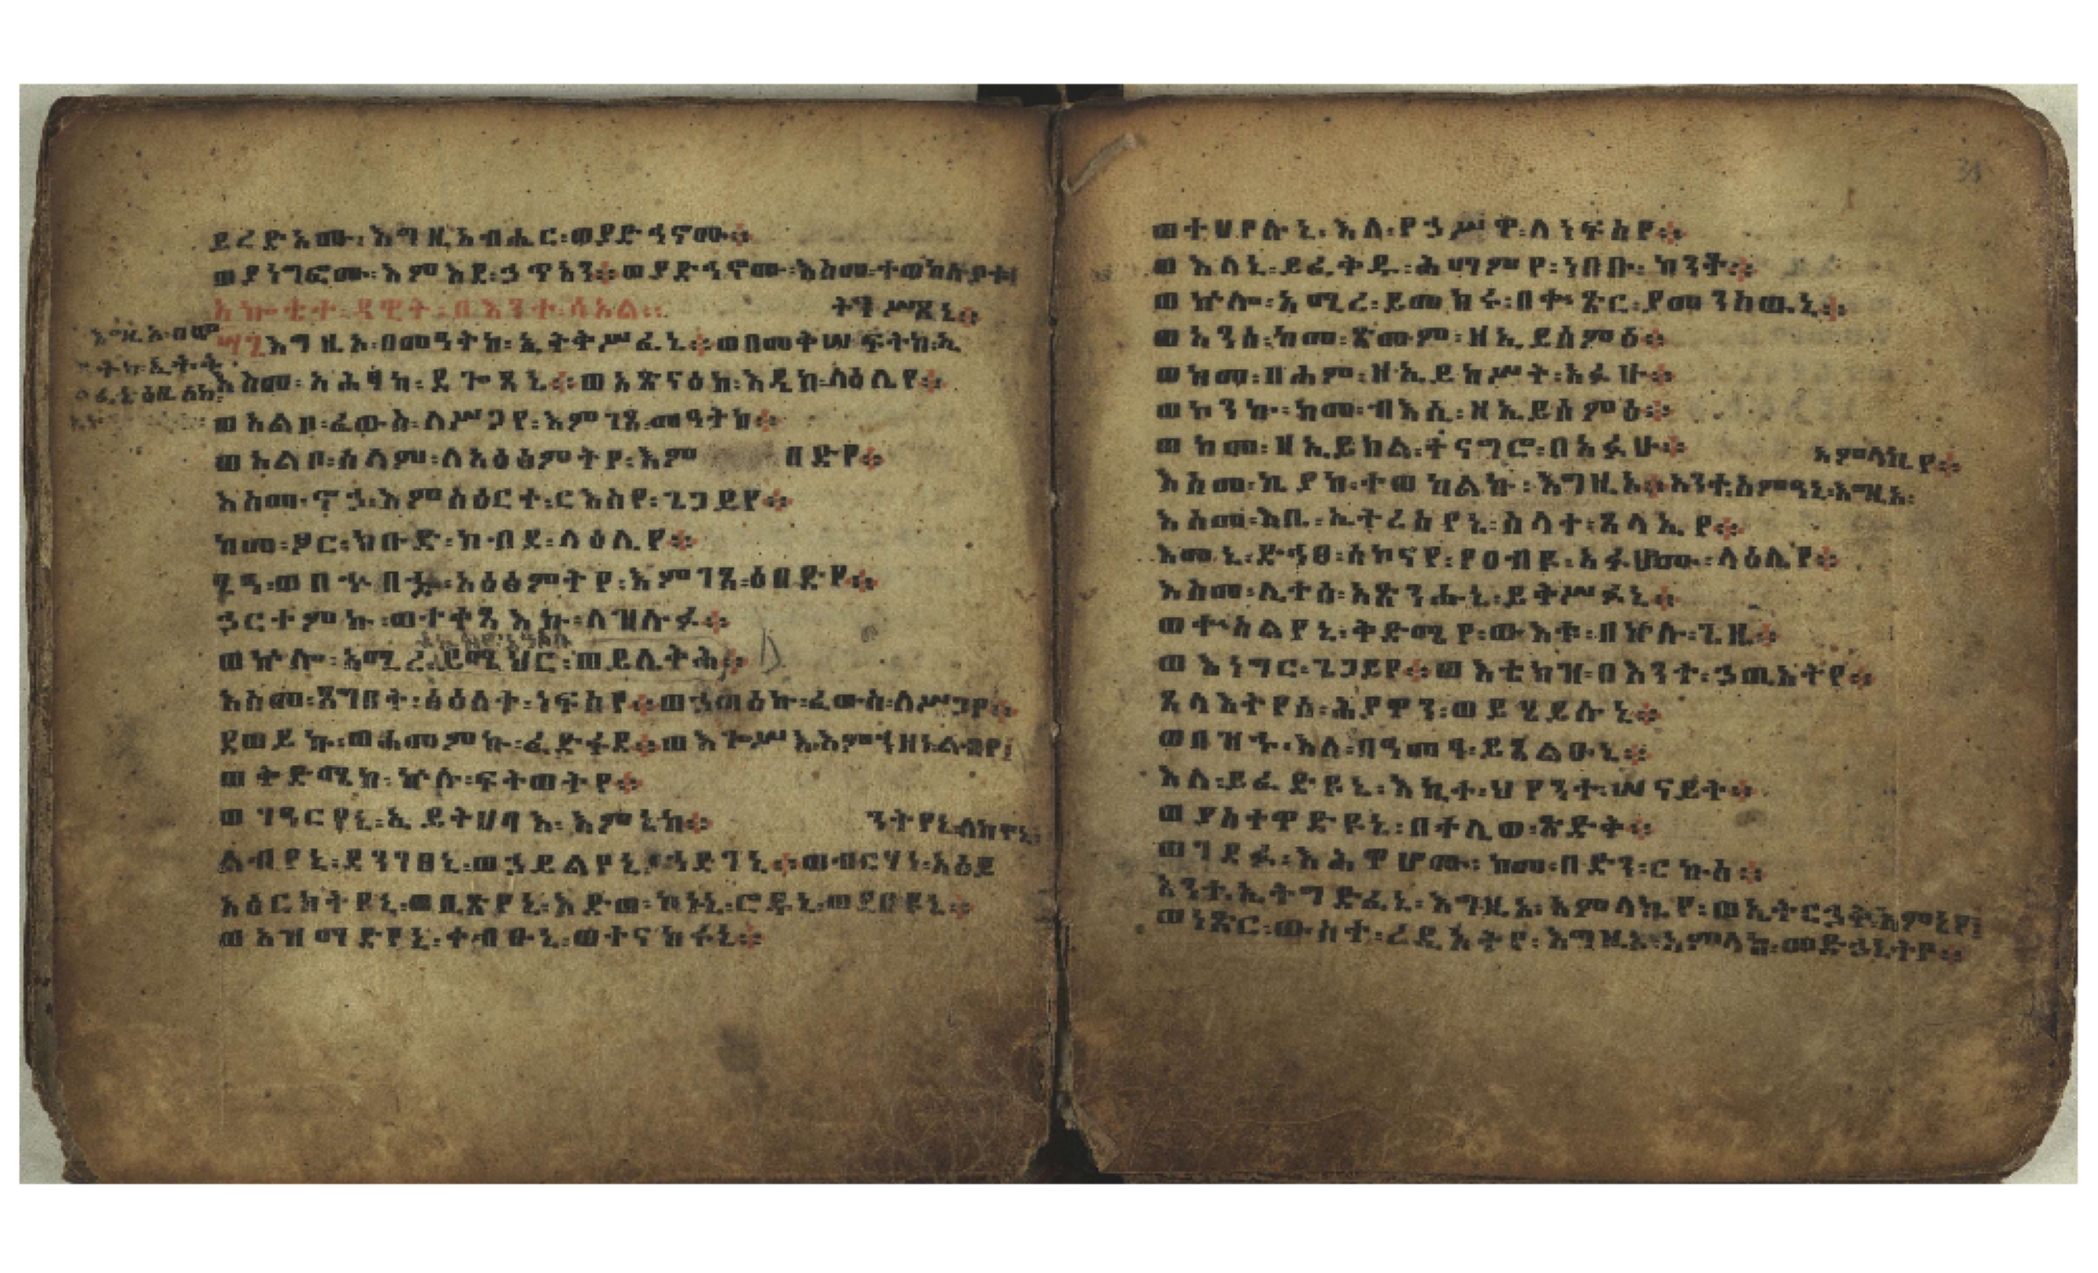 ይረድኦሙ፡እግዚአብሔር፡ወያድኅኖሙ።
ወያነግፎሙ፡እምእደ፡ኃጥአን።ወያድኅኖሙ፡እስመ፡ተወከሉ
ትገሥጸኒ።
እግዚኦ፡በመዓትከ፡ኢትቅሥፈኒ።ወበመቅሠፍትከ፡ኢ
እስመ፡አሕፃከ፡ደጐጻኒ።ወአጽናዕከ፡እዴከ፡ላዕሌየ።
ወአልቦ፡ፈውስ፡ለሥጋየ፡እምገጸ፡መዓትከ።
ወአልቦ፡ሰላም፡ለአዕፅምትየ፡እም በድየ።
እስመ፡ኖኃ፡እምስዕርተ፡ርእስየ፡ጌጋይየ።
ከመ፡ፆር፡ክቡድ፡ከብደ፡ላዕሌየ።
ጼዓ፡ወበኵበኰ፡አዕፅምትየ፡እምገጸ፡ዕበድየ።
ኃርተምኩ፡ወተቀጻእኩ፡ለዝሉፉ።
ወኵሎ፡አሚረ፡ይሜህር፡ወይሌትሕ።
እስመ፡ጸግበት፡ፅዕለት፡ነፍስየ።ወኃጣዕኩ፡ፈውስ፡ለሥጋየ።
ደወይኩ፡ወሐመምኩ፡ፈድፋደ።ወእጐሥእ፡እምኀዘነ፡ልብየ፤
ወቅድሜከ፡ኵሉ፡ፍትወትየ።
ወገዓርየኒ፡ኢይትሀባእ፡እምኔከ።
ልብየኒ፡ደንገፀኒ፡ወኃይልየኒ፡ኃድገኒ።ወብርሃነ፡አዕይ
አዕርክትየኒ፡ወቢጽየኒ፡እድወ፡ኮኑኒ፡ሮዱኒ፡ወደበዩኒ።
ወአዝማድየኒ፡ቀብዑኒ፡ወተናከሩኒ።
ወተሀየሉኒ፡እለ፡የኃሥዋ፡ለነፍስየ።
ወእለኒ፡ይፈቅዱ፡ሕማምየ፡ነበቡ፡ከንቶ።
ወኵሎ፡አሚረ፡ይመክሩ፡በቍጽር፡ያመንስዉኒ።
ወአንሰ፡ከመ፡ጽሙም፡ዘኢይሰምዕ።
ወከመ፡በሐም፡ዘኢይከሥት፡አፉሁ።
ወኮንኩ፡ከመ፡ብእሲ፡ዘኢይሰምዕ።
ወከመ፡ዘኢይክል፡ተናግሮ፡በአፉሁ።
አምላኪየ።
እስመ፡ኪያከ፡ተወከልኩ፡እግዚኦ።አንተ፡ስምዓኒ፡እግዚኦ፡
እስመ፡እቤ፡ኢትረስየኒ፡ስላተ፡ጸላኢየ።
እመኒ፡ድኅፀ፡ሰኮናየ፡የዐብዩ፡አፉሆሙ፡ላዕሌየ።
እስመ፡ሊተሰ፡አጽንሑኒ፡ይቅሥፉኒ።
ወቍስልየኒ፡ቅድሜየ፡ውእቱ፡በኵሉ፡ጊዜ።
ወእነግር፡ጌጋይየ።ወእቴክዝ፡በእንተ፡ኃጢአትየ።
ጸላእትየሰ፡ሕያዋን፡ወይሄይሉኒ።
ወበዝኁ፡እለ፡በዓመፃ፡ይጸልዑኒ።
እለ፡ይፈድዩኒ፡እኪተ፡ህየንተ፡ሠናይት።
ወያስተዋድዩኒ፡በተሊወ፡ጽድቅ።
ወገደፉ፡እሕዋሆሙ፡ከመ፡በድን፡ርኩስ።
አንተ፡ኢትግድፈኒ፡እግዚኦ፡አምላኪየ፡ወኢትርኃቅ፡እምኔየ፤
ወነጽር፡ውስተ፡ረዲኦትየ፡እግዚኦ፡አምላከ፡መድኃኒትየ።